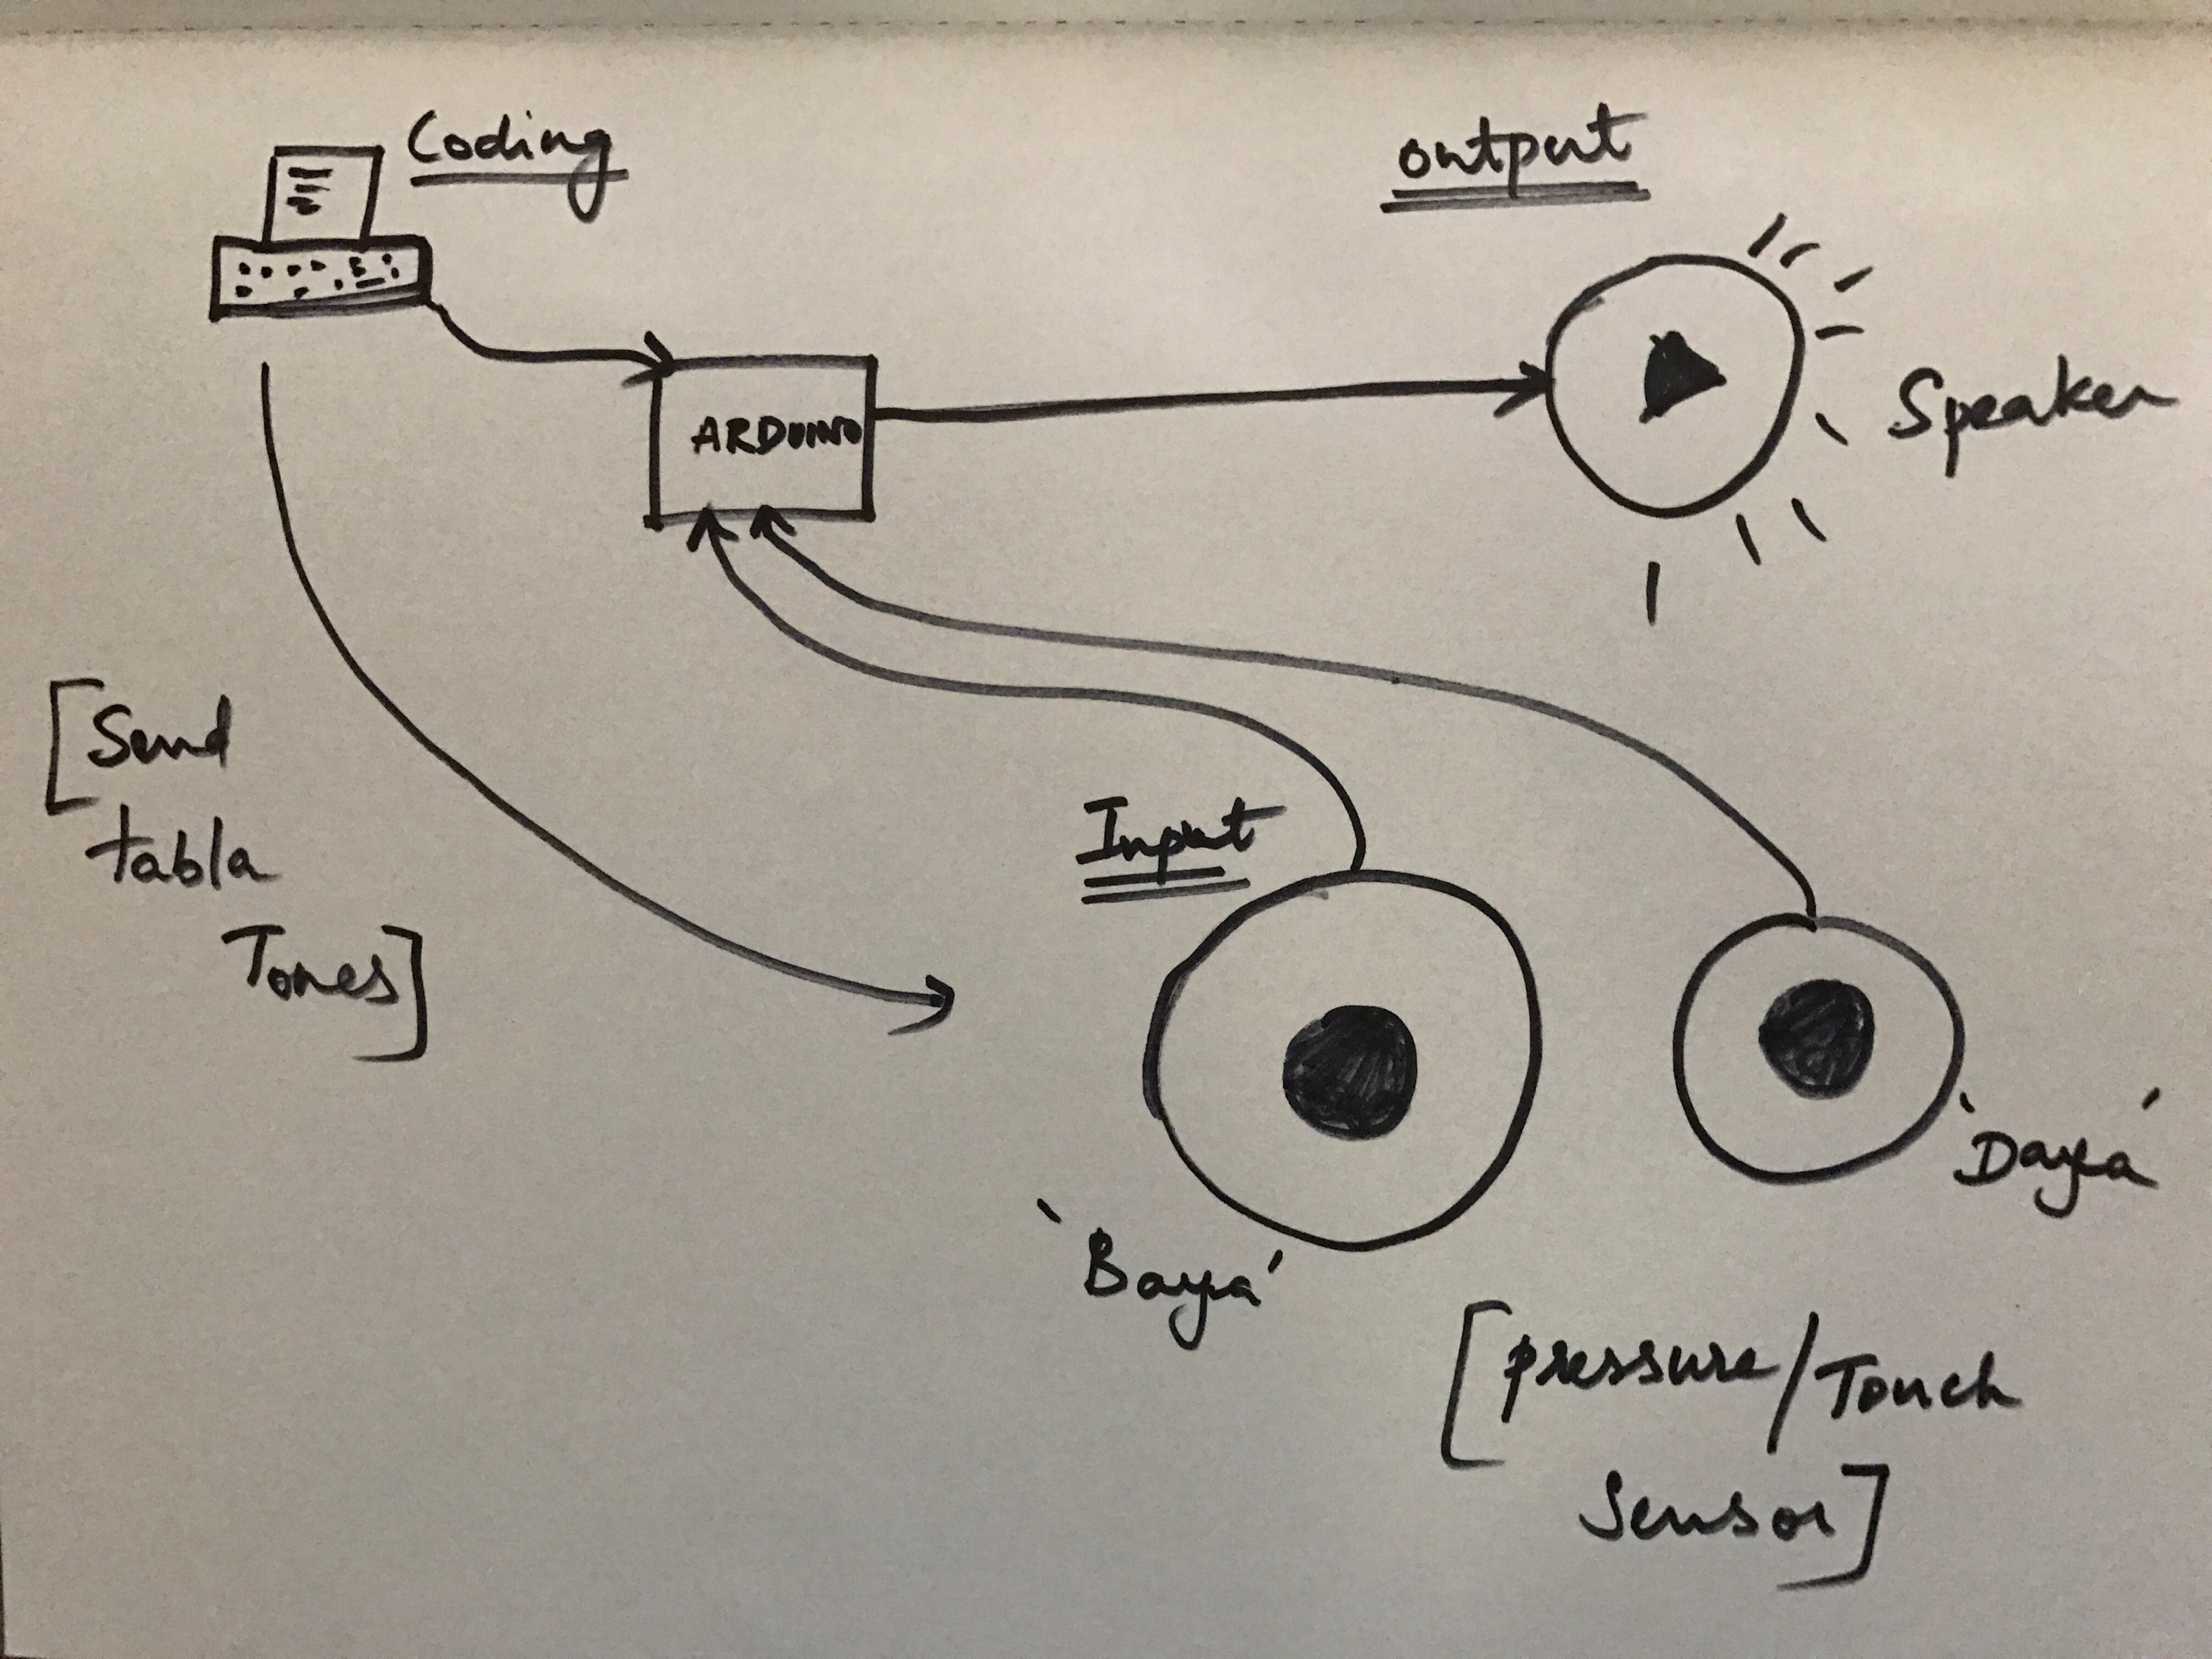 Coding
output
ARDUINO
Speaker
[Send
tabla
Tones]
Input
'Daya'
'Baya'
[pressure/Touch
Sensor]